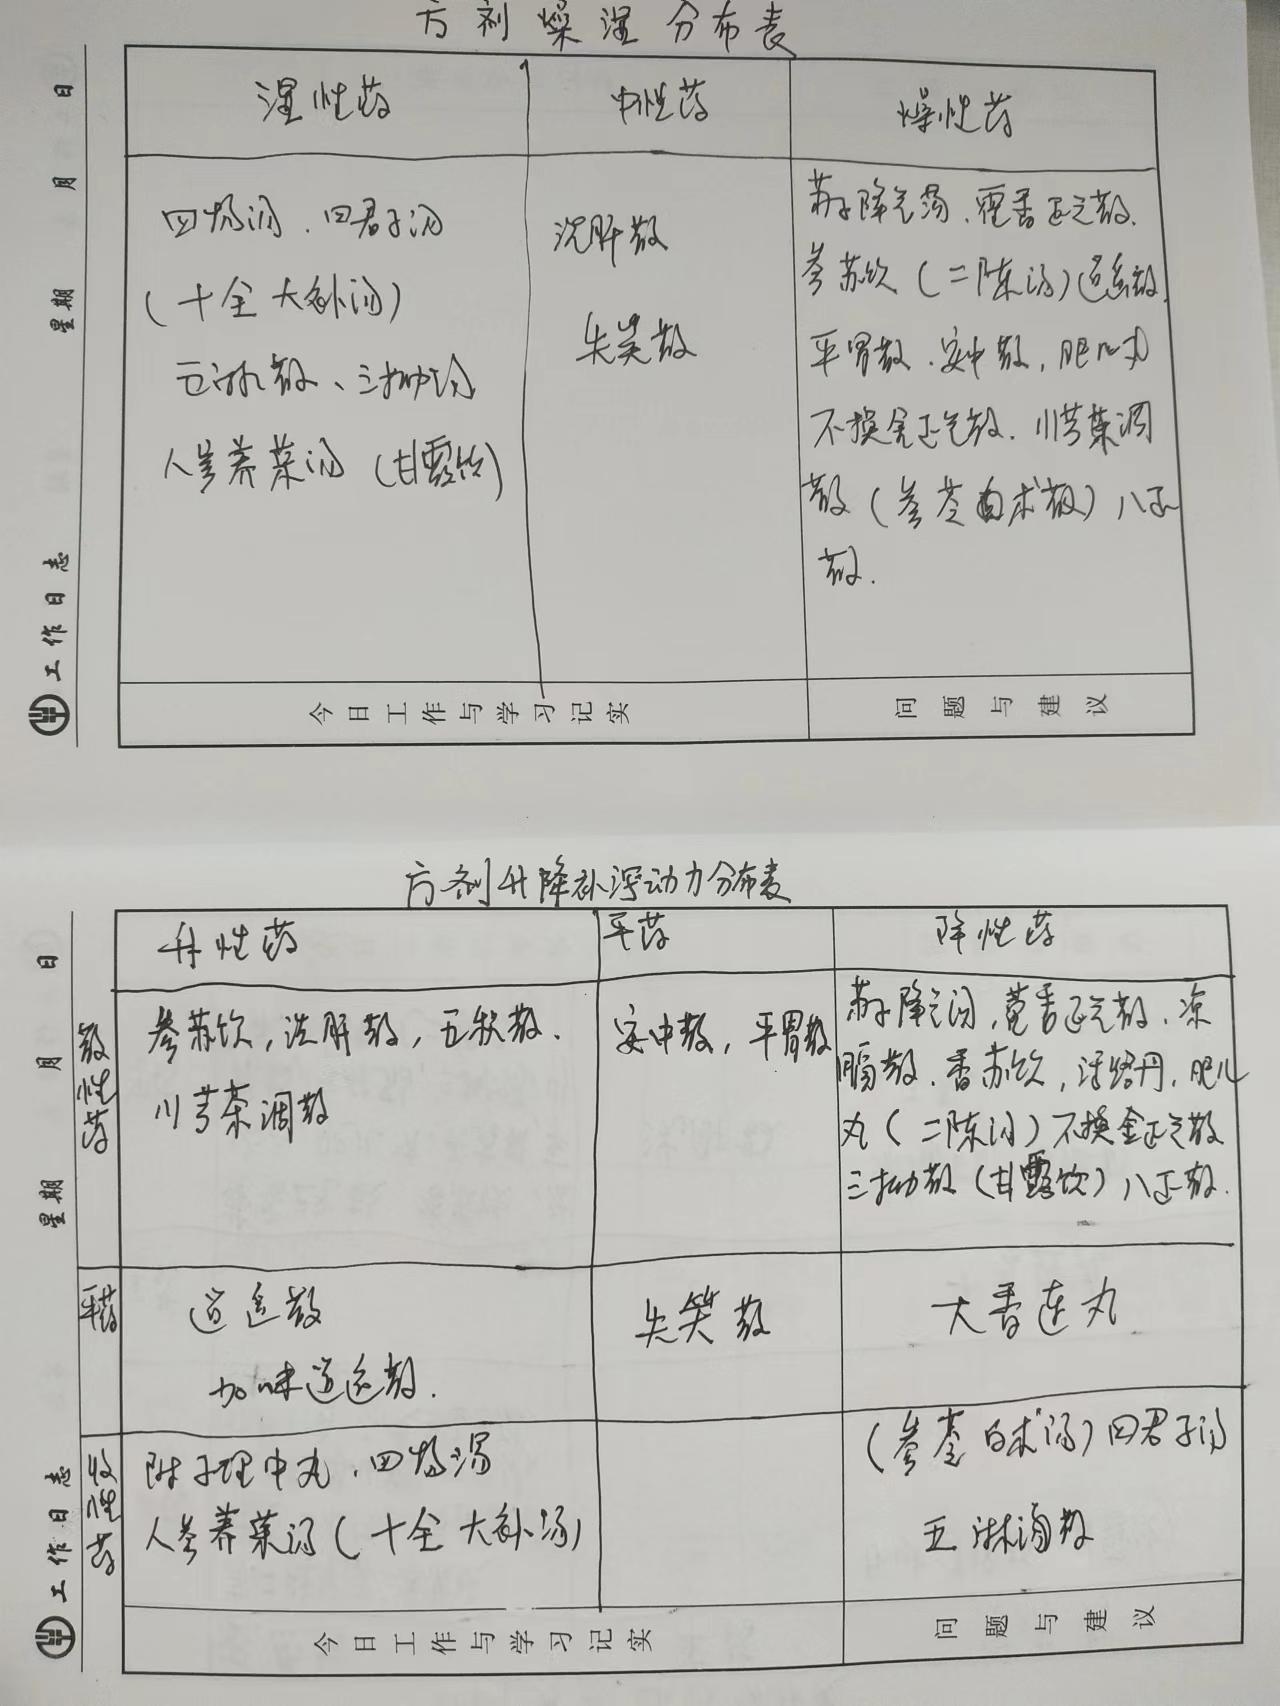 方剂燥湿分布表
日
月
星期
工作日志
湿性药
中性药
燥性药
四物汤、四君子汤
(十全大补汤)
五淋散、三拗汤
人参养荣汤(甘露饮)
洗肝散
失笑散
苏子降气汤、藿香正气散、
参苏饮(二陈汤)逍遥散
平胃散、安中散,肥儿丸
不换金正气散、川芎茶调
散(参苓白术散)八正
散.
今日工作与学习记实
问题与建议
方剂升降补泻动力分布表
日
月
星期
工作日志
升性药
平药
降性药
散性药
参苏饮,洗肝散,五积散、
川芎茶调散
安中散,平胃散
苏子降气汤,藿香正气散、凉
膈散、香苏饮,活络丹,肥儿
丸(二陈汤)不换金正气散
三拗散(甘露饮)八正散.
平药
逍遥散
加味逍遥散.
失笑散
大香连丸
收性药
附子理中丸、四物汤
人参养荣汤(十全大补汤)
(参苓白术汤)四君子汤
五淋汤散
今日工作与学习记实
问题与建议